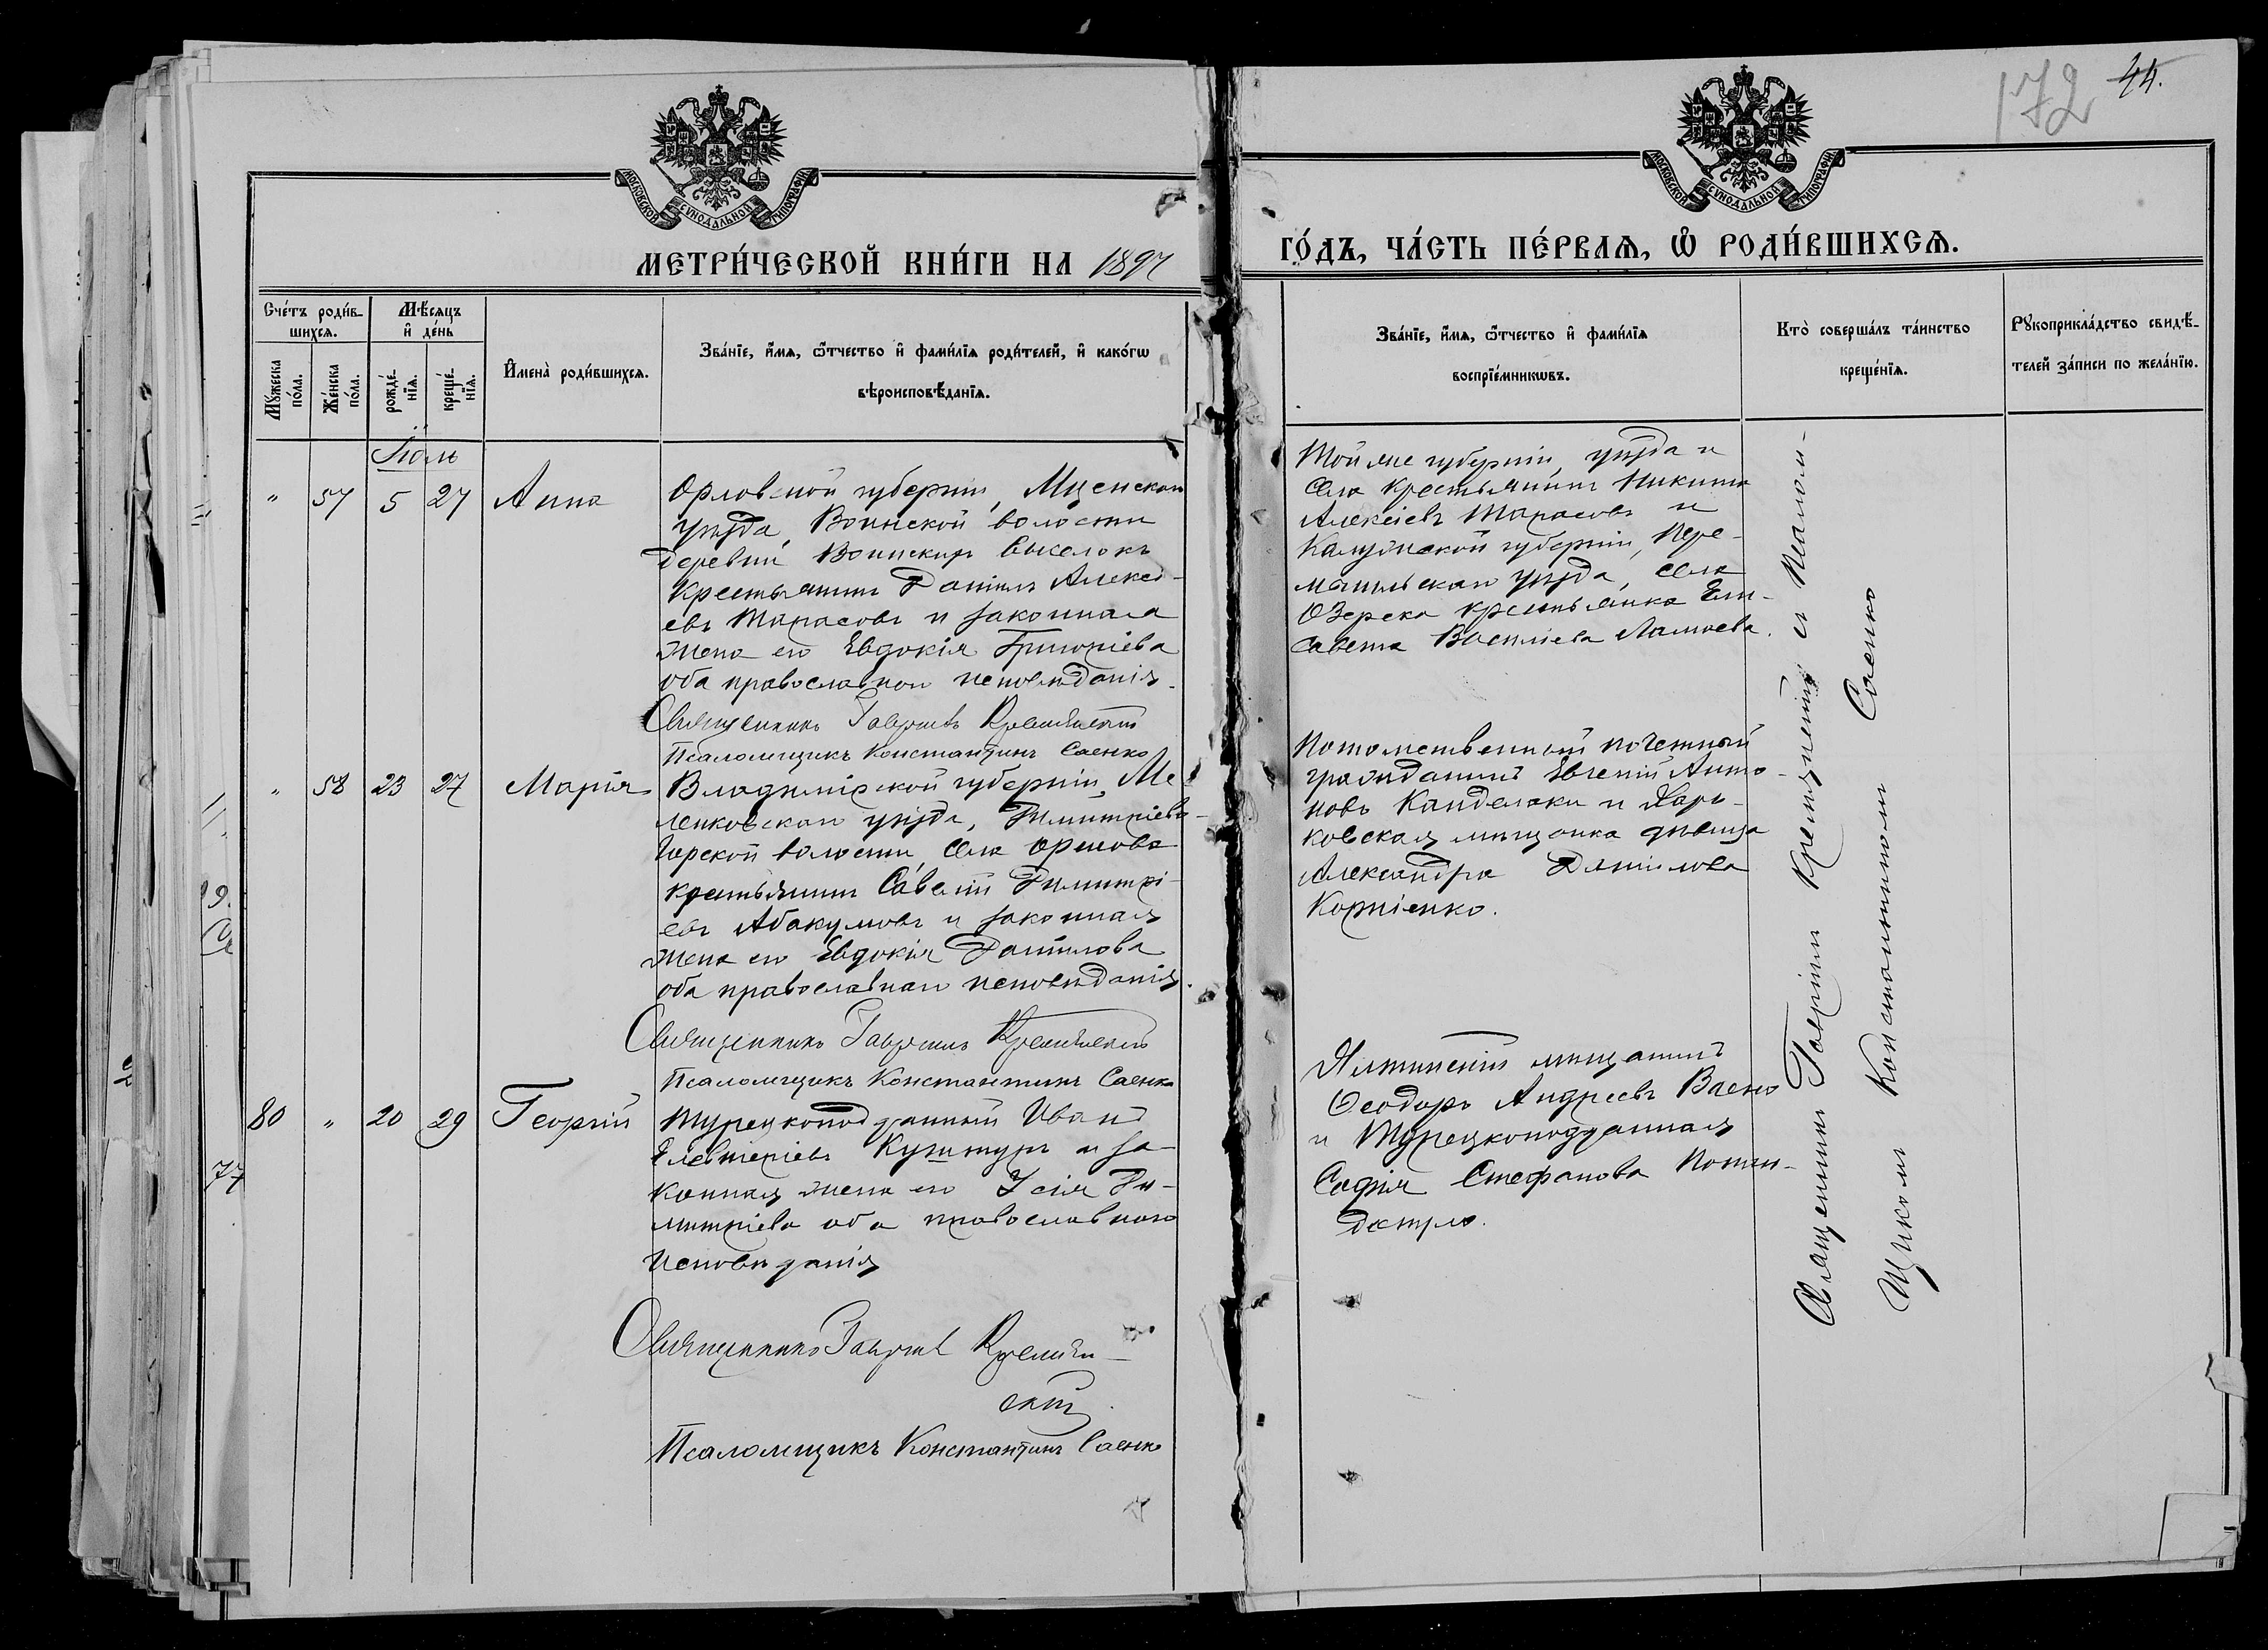 172 44.
МОСКОВСКОЙ СУНОДАЛЬНОЙ ТИПОГРАФІИ
МОСКОВСКОЙ СУНОДАЛЬНОЙ ТИПОГРАФІИ
МЕТРИ́ЧЕСКОЙ КНИ́ГИ НА 1897
ГО́ДЪ, ЧА́СТЬ ПЕ́РВАѦ, Ѡ РОДИ́ВШИХСѦ.
Сче́тъ роди́в-
шихсѧ.
Мѣ́сѧцъ
и҆ де́нь
Мꙋ́жеска
по́ла.
Же́нска
по́ла.
рожде́-
нїѧ.
креще́-
нїѧ.
И҆мена̀ роди́вшихсѧ.
Зва́нїе, и҆́мѧ, ѻ҆́тчество и҆ фами́лїѧ роди́телей, и҆ како́гѡ
вѣроисповѣ́данїѧ.
Зва́нїе, и҆́мѧ, ѻ҆́тчество и҆ фами́лїѧ
воспрїе́мникѡвъ.
Кто̀ соверша́лъ та́инство
креще́нїѧ.
Рꙋкоприкла́дство свидѣ́-
телей за́писи по жела́нїю.
Іюль
" 57 5 27 Анна
Орловской губерніи, Мценскаго
уѣзда, Воинской волости
деревни Воинскихъ выселокъ
крестьянинъ Даніилъ Алексѣ-
евъ Тарасовъ и законная
жена его Евдокія Григоріева
оба православнаго исповѣданія.
Священникъ Гавріилъ Кремянскій
Псаломщикъ Константинъ Саенко
Той же губерніи, уѣзда и
села крестьянинъ Никита
Алексіевъ Тарасовъ и
Калужской губерніи, Пере-
мышльскаго уѣзда, села
Озерска крестьянка Ели-
савета Васильева
" 58 23 27 Марія
Владимірской губерніи, Ме-
ленковскаго уѣзда, Димитріево-
Горской волости, села
крестьянинъ Савелій Димитрі-
евъ Абакумовъ и законная
жена его Евдокія Даніилова
оба православнаго исповѣданія.
Священникъ Гавріилъ Кремянскій
Псаломщикъ Константинъ Саенко
Потомственный почетный
гражданинъ Евгеній Анто-
новъ Канделаки и Харь-
ковская мѣщанка дѣвица
Александра Даніилова
Корніенко.
80 " 20 29 Георгій
Турецкоподданный Иванъ
Елевтеріевъ и за-
конная жена его Ди-
митріева оба православнаго
исповѣданія
Священникъ Гавріилъ Кремян-
скій.
Псаломщикъ Константинъ Саенко
Ялтинскій мѣщанинъ
Ѳеодоръ Андреевъ
и Турецкоподданная
Софія Стефанова
Священникъ Гавріилъ Кремянскій и Псалом-
щикомъ Константиномъ Саенко
77